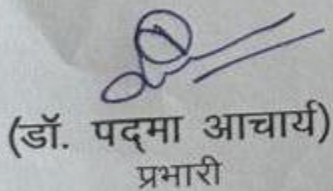 (डॉ. पदमा आचार्य)
प्रभारी